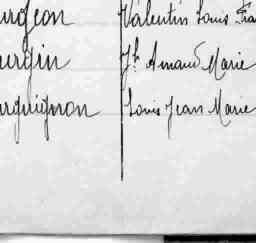 urgeon Valentin Louis Fra
urgin Jh Amand Marie
urguignon Louis Jean Marie